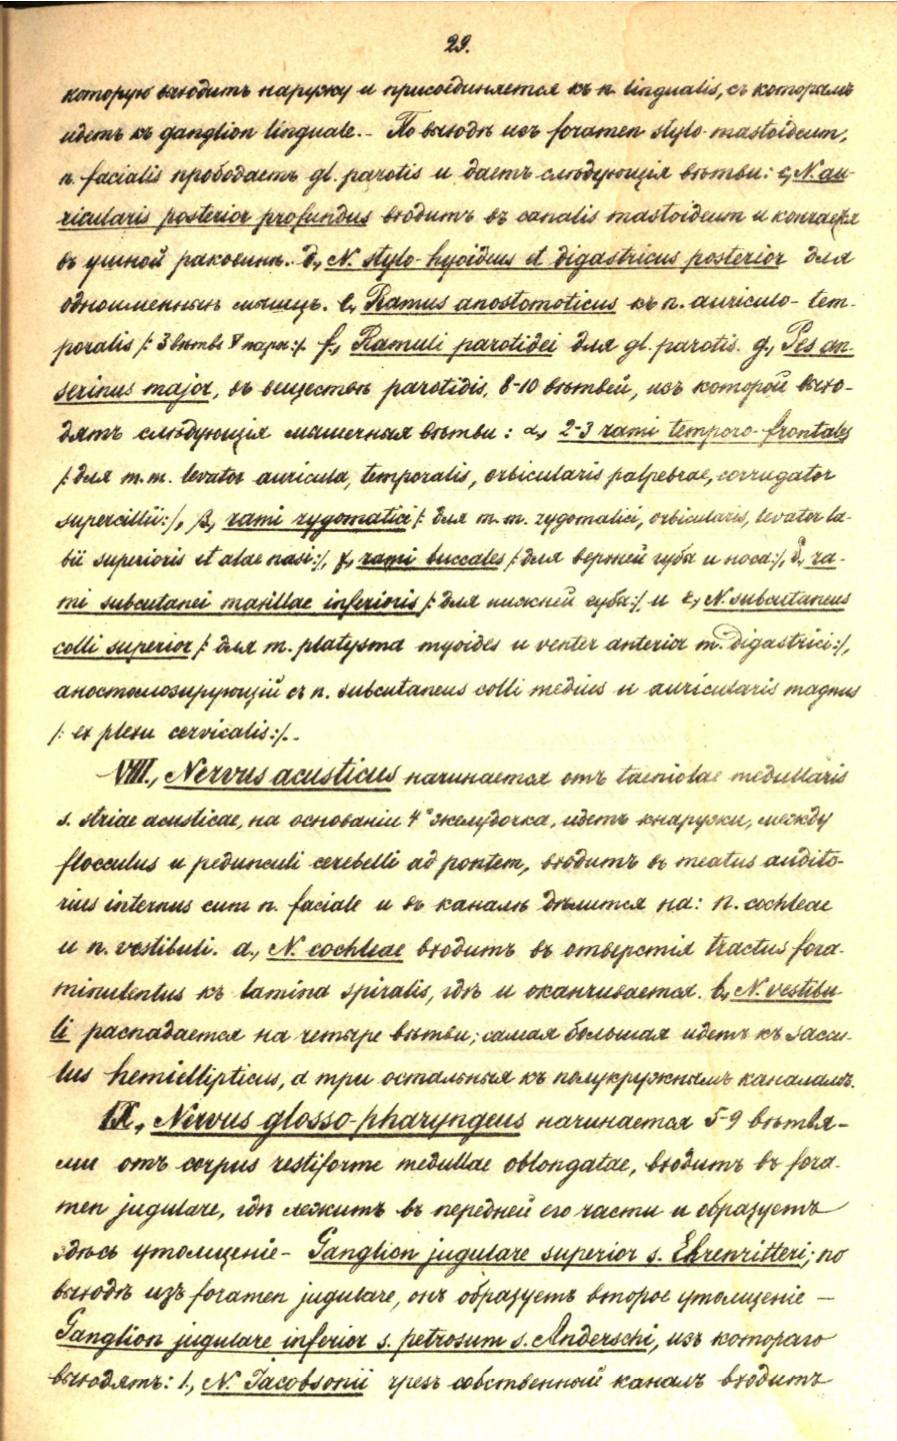 29.
которую выходитъ наружу и присоединяется къ n. lingualis, съ которымъ
идетъ къ ganglion linguale.- По выходѣ изъ foramen stylo-mastoideum,
n. facialis прободаетъ gl. parotis и даетъ слѣдующія вѣтви: c, N. au-
ricularis posterior profundus входитъ въ canalis mastoideum и кончается
въ ушной раковинѣ. d, N. stylo-hyoideus et digastricus posterior для
одноименныхъ мышцъ. e, Ramus anostomoticus къ n. auriculo-tem-
poralis /: 3 вѣтвь V пары:/. f, Ramuli parotidei для gl. parotis. g, Pes an-
serinus major, въ веществѣ parotidis, 8-10 вѣтвей, изъ которой выхо-
дятъ слѣдующія мышечныя вѣтви: α, 2-3 rami temporo-frontales
/: для m.m. levator auricula, temporalis, orbicularis palpebrae, corrugator
supercillii:/, β, rami zygomatici /: для m.m. zygomatici, orbicularis, levator la-
bii superioris et alae nasi:/, γ, rami buccales /: для верхней губы и носа:/, δ, ra-
mi subcutanei maxillae inferioris /: для нижней губы:/ и ε, N. subcutaneus
colli superior /: для m. platysma myoides и venter anterior m. digastrici:/,
анастомозирующій съ n. subcutaneus colli medius и auricularis magnus
/: ex plexu cervicalis:/.-
VIII., Nervus acusticus начинается отъ taeniolae medullaris
s. striae acusticae, на основаніи 4го желудочка, идетъ кнаружи, между
flocculus и pedunculi cerebelli ad pontem, входитъ въ meatus audito-
rius internus cum n. faciale и въ каналѣ дѣлится на: n. cochleae
и n. vestibuli. a., N. cochleae входитъ въ отверстія tractus fora-
minulentus къ lamina spiralis, гдѣ и оканчивается. b, N. vestibu-
li распадается на четыре вѣтви; самая большая идетъ къ saccu-
lus hemiellipticus, а три остальныя къ полукружнымъ каналамъ.
IX., Nervus glosso-pharyngeus начинается 5-9 вѣтвя-
ми отъ corpus restiforme medullae oblongatae, входитъ въ fora-
men jugulare, гдѣ лежитъ въ передней его части и образуетъ
здѣсь утолщеніе - Ganglion jugulare superior s. Ehrenritteri; по
выходѣ изъ foramen jugulare, онъ образуетъ второе утолщеніе -
Ganglion jugulare inferior s. petrosum s. Anderschi, изъ котораго
выходятъ: 1, N. Jacobsonii чрезъ собственный каналъ входитъ